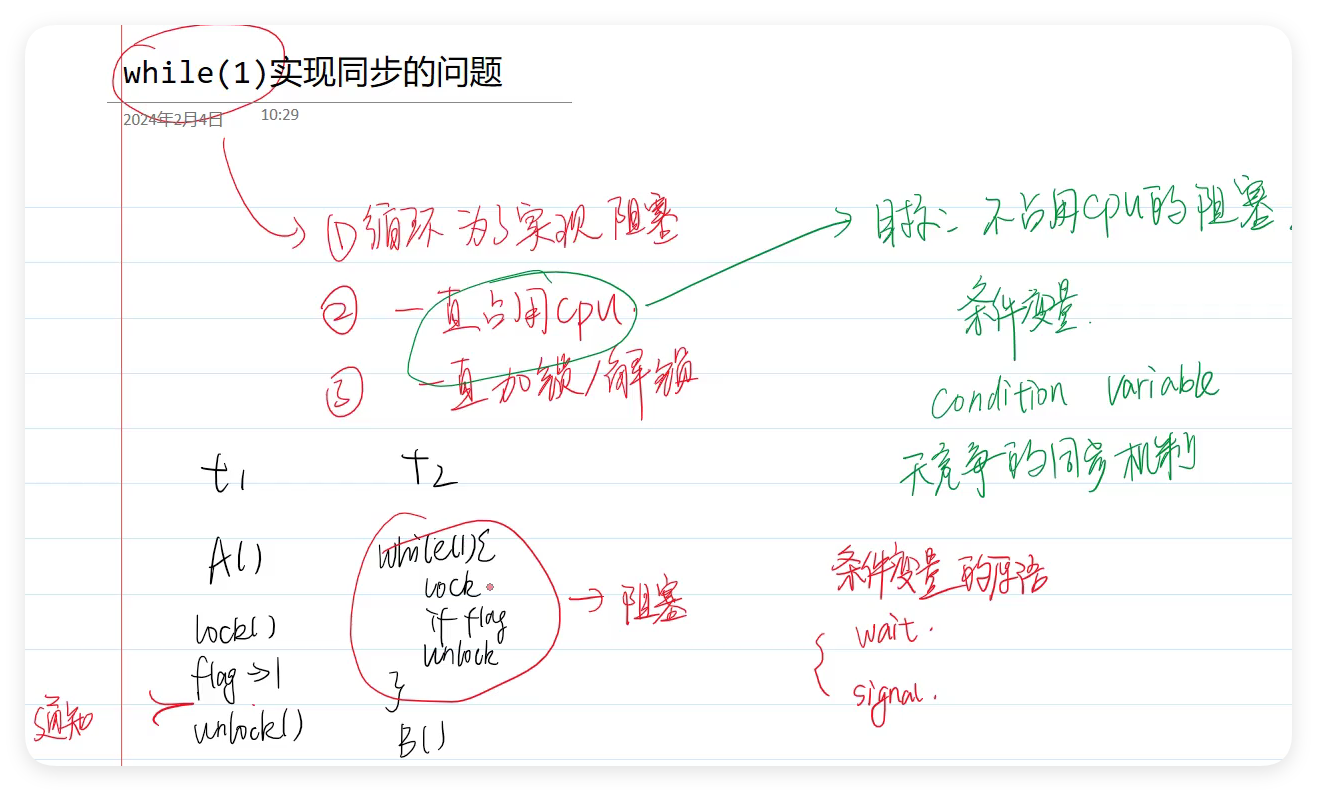 while(1)实现同步的问题
2024年2月4日 10:29
① 循环 为了实现 阻塞
② 一直占用CPU.
③ 一直加锁/解锁
目标: 不占用CPU的阻塞.
条件变量.
Condition variable
无竞争的同步机制
t1
A()
lock()
flag→1
unlock()
通知
T2
while(1){
lock
if flag
unlock
}
B()
→ 阻塞
条件变量的原语
{ wait.
signal.